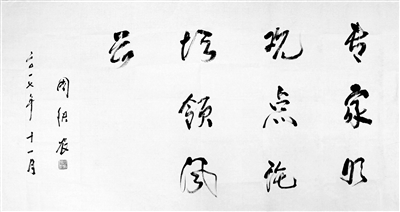 专家明
观点论
坛领风
云
周 农
二〇一七年十一月